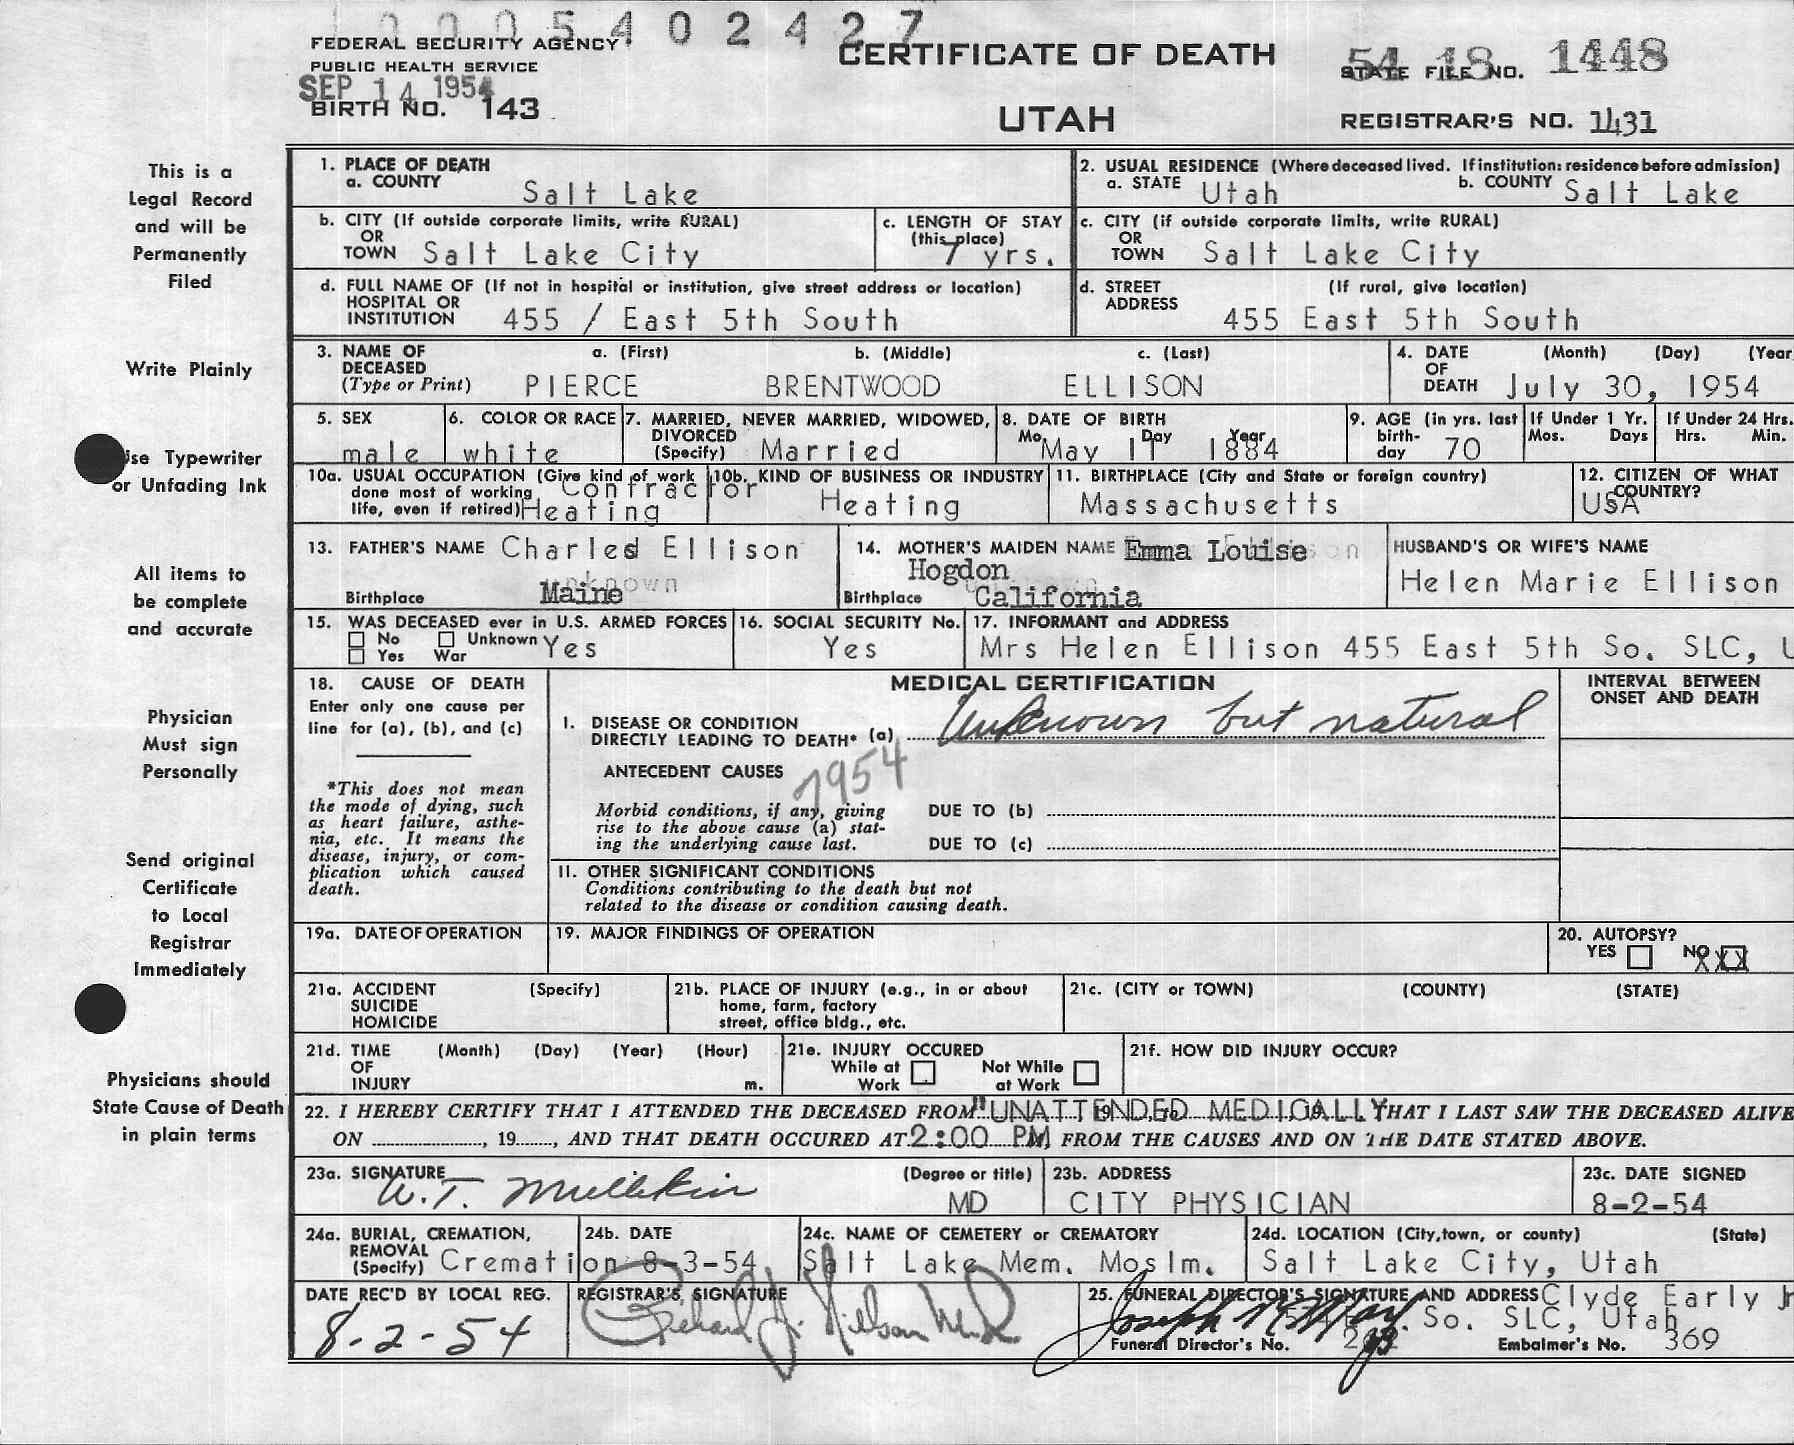 1000 5 4 0 2 4 2 7
FEDERAL SECURITY AGENCY
PUBLIC HEALTH SERVICE
SEP 14 1954
BIRTH NO. 143
CERTIFICATE OF DEATH
UTAH
54 18 1448
STATE FILE NO.
REGISTRAR'S NO. 1431
This is a
Legal Record
and will be
Permanently
Filed
Write Plainly
Use Typewriter
or Unfading Ink
All items to
be complete
and accurate
Physician
Must sign
Personally
Send original
Certificate
to Local
Registrar
Immediately
Physicians should
State Cause of Death
in plain terms
1. PLACE OF DEATH
a. COUNTY Salt Lake
2. USUAL RESIDENCE (Where deceased lived. If institution: residence before admission)
a. STATE Utah b. COUNTY Salt Lake
b. CITY (If outside corporate limits, write RURAL)
OR
TOWN Salt Lake City
c. LENGTH OF STAY
(this place)
7 yrs.
c. CITY (if outside corporate limits, write RURAL)
OR
TOWN Salt Lake City
d. FULL NAME OF (If not in hospital or institution, give street address or location)
HOSPITAL OR
INSTITUTION 455 / East 5th South
d. STREET (If rural, give location)
ADDRESS
455 East 5th South
3. NAME OF a. (First) b. (Middle) c. (Last)
DECEASED
(Type or Print) PIERCE BRENTWOOD ELLISON
4. DATE (Month) (Day) (Year
OF
DEATH July 30, 1954
5. SEX
male
6. COLOR OR RACE
white
7. MARRIED, NEVER MARRIED, WIDOWED,
DIVORCED
(Specify) Married
8. DATE OF BIRTH
Mo. Day Year
May 11 1884
9. AGE (in yrs. last
birth-
day 70
If Under 1 Yr.
Mos. Days
If Under 24 Hrs.
Hrs. Min.
10a. USUAL OCCUPATION (Give kind of work
done most of working
life, even if retired)
Contractor
Heating
10b. KIND OF BUSINESS OR INDUSTRY
Heating
11. BIRTHPLACE (City and State or foreign country)
Massachusetts
12. CITIZEN OF WHAT
COUNTRY?
USA
13. FATHER'S NAME Charles Ellison
unknown
Birthplace Maine
14. MOTHER'S MAIDEN NAME Emma Louise
Hogdon
Birthplace California
HUSBAND'S OR WIFE'S NAME
Helen Marie Ellison
15. WAS DECEASED ever in U.S. ARMED FORCES
No Unknown Yes
Yes War
16. SOCIAL SECURITY No.
Yes
17. INFORMANT and ADDRESS
Mrs Helen Ellison 455 East 5th So. SLC, U
18. CAUSE OF DEATH
Enter only one cause per
line for (a), (b), and (c)
*This does not mean
the mode of dying, such
as heart failure, asthe-
nia, etc. It means the
disease, injury, or com-
plication which caused
death.
MEDICAL CERTIFICATION
I. DISEASE OR CONDITION
DIRECTLY LEADING TO DEATH* (a) Unknown but natural
ANTECEDENT CAUSES
7954
Morbid conditions, if any, giving
rise to the above cause (a) stat-
ing the underlying cause last.
DUE TO (b)
DUE TO (c)
II. OTHER SIGNIFICANT CONDITIONS
Conditions contributing to the death but not
related to the disease or condition causing death.
INTERVAL BETWEEN
ONSET AND DEATH
19a. DATE OF OPERATION
19. MAJOR FINDINGS OF OPERATION
20. AUTOPSY?
YES NO XXX
21a. ACCIDENT (Specify)
SUICIDE
HOMICIDE
21b. PLACE OF INJURY (e.g., in or about
home, farm, factory
street, office bldg., etc.
21c. (CITY or TOWN) (COUNTY) (STATE)
21d. TIME (Month) (Day) (Year) (Hour)
OF
INJURY m.
21e. INJURY OCCURED
While at Not While
Work at Work
21f. HOW DID INJURY OCCUR?
22. I HEREBY CERTIFY THAT I ATTENDED THE DECEASED FROM "UNATTENDED MEDICALLY THAT I LAST SAW THE DECEASED ALIVE
ON , 19 , AND THAT DEATH OCCURED AT 2:00 PM, FROM THE CAUSES AND ON THE DATE STATED ABOVE.
23a. SIGNATURE (Degree or title)
W. T. Mullikin MD
23b. ADDRESS
CITY PHYSICIAN
23c. DATE SIGNED
8-2-54
24a. BURIAL, CREMATION,
REMOVAL
(Specify) Cremation
24b. DATE
8-3-54
24c. NAME OF CEMETERY or CREMATORY
Salt Lake Mem. Moslm.
24d. LOCATION (City, town, or county) (State)
Salt Lake City, Utah
DATE REC'D BY LOCAL REG.
8-2-54
REGISTRAR'S SIGNATURE
Richard J. Nielson M.D.
25. FUNERAL DIRECTOR'S SIGNATURE AND ADDRESS Clyde Early Jr
So. SLC, Utah
Funeral Director's No. Embalmer's No. 369